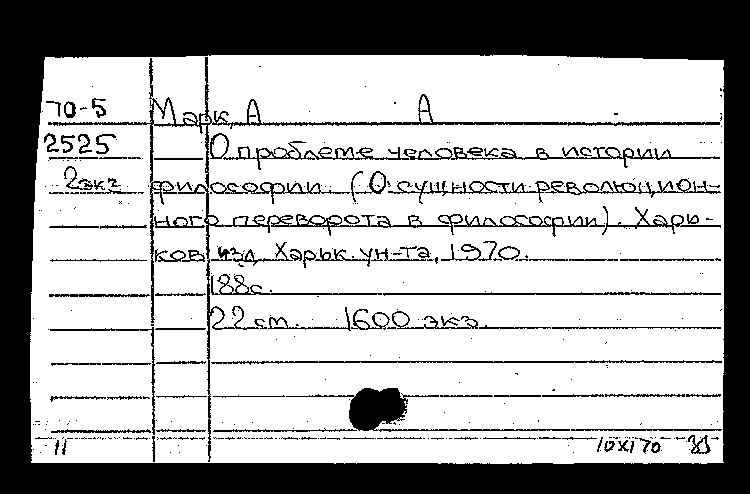 70-5 Марк, А А
2525 О проблеме человека в истории
2экз философии. (О сущности революцион-
ного переворота в философии). Харь-
ков, изд. Харьк. ун-та, 1970.
188с.
22 см. 1600 экз.
11 10XI70